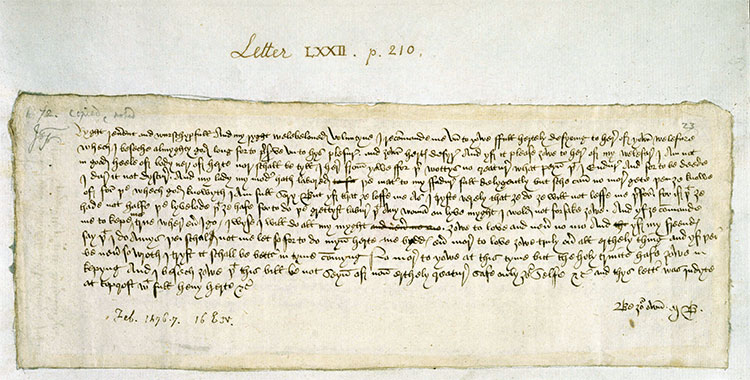 Letter LXXII. p. 210.
23
Ryght reuerent and wurschypfull and my ryght welebeloued Voluntyne I recomande me vn to yowe full hertely desyring to here of yowr welefare
whech I beseche almyghty god long for to pserve vn to hys plesur and yowr hertys desyr And yf it please yowe to here of my welefar I am not
in good heele of body ner of herte nor schall be tyll I here from yowe ffor þer wottys no creatur what peyn þt I endur And for to be deede
I dur it not dyscur And my lady my moder hath labored þe mater to my ffadur full delygently but sche can no mor gete þen ye knowe
of for þe whech god knowyth I am full sory But yf that ye loffe me as I tryste verely that ye do ye will not leffe me þerfor for if þt ye
hade not halfe þe lyvelode þt ye hafe for to do þe grettyst labur þt any woman on lyve myght I wold not forsake yowe And yf ye comande
me to kepe me true wher euer I go iwyse I will do all my myght yowe to love and neuer no mo And yf my freendys
say þt I do amys þei schal not me let so for to do myn herte me byddys euer mor to love yowe truly ouer all erthely thing and yf þei
be neuer so wroth I tryst it schall be bettur in tyme commyng No mor to yowe at this tyme but the holy trinite hafe yowe in
kepyng And I besech yowe þt this bill be not seyn of non erthely creatur safe only yor selfe &c and thys lettur was indyte
at topcroft wt full heuy herte &c
Be yor own M B
Feb. 1476-7. 16 E. iv.